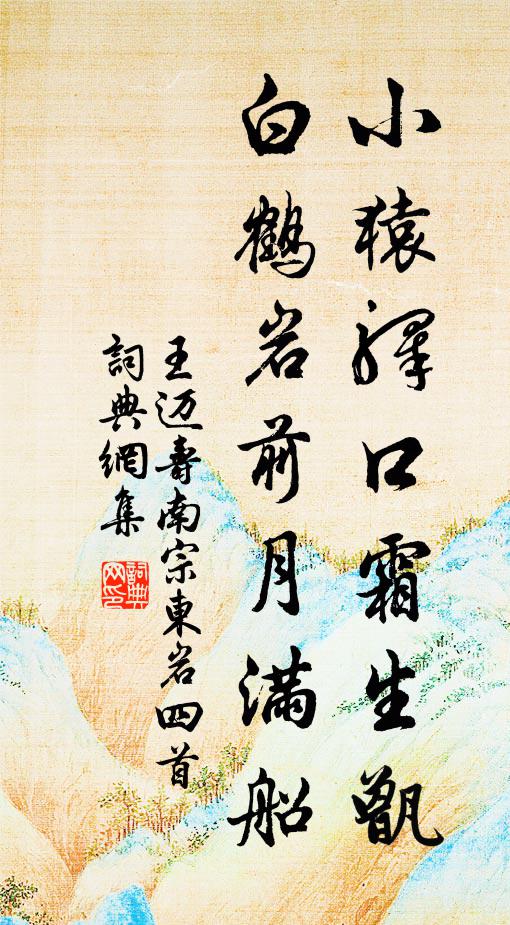 小猿驛口霜生甑
白鶴岩前月滿船
王迈壽南宗東岩四首
詞典網集
詞典
网印